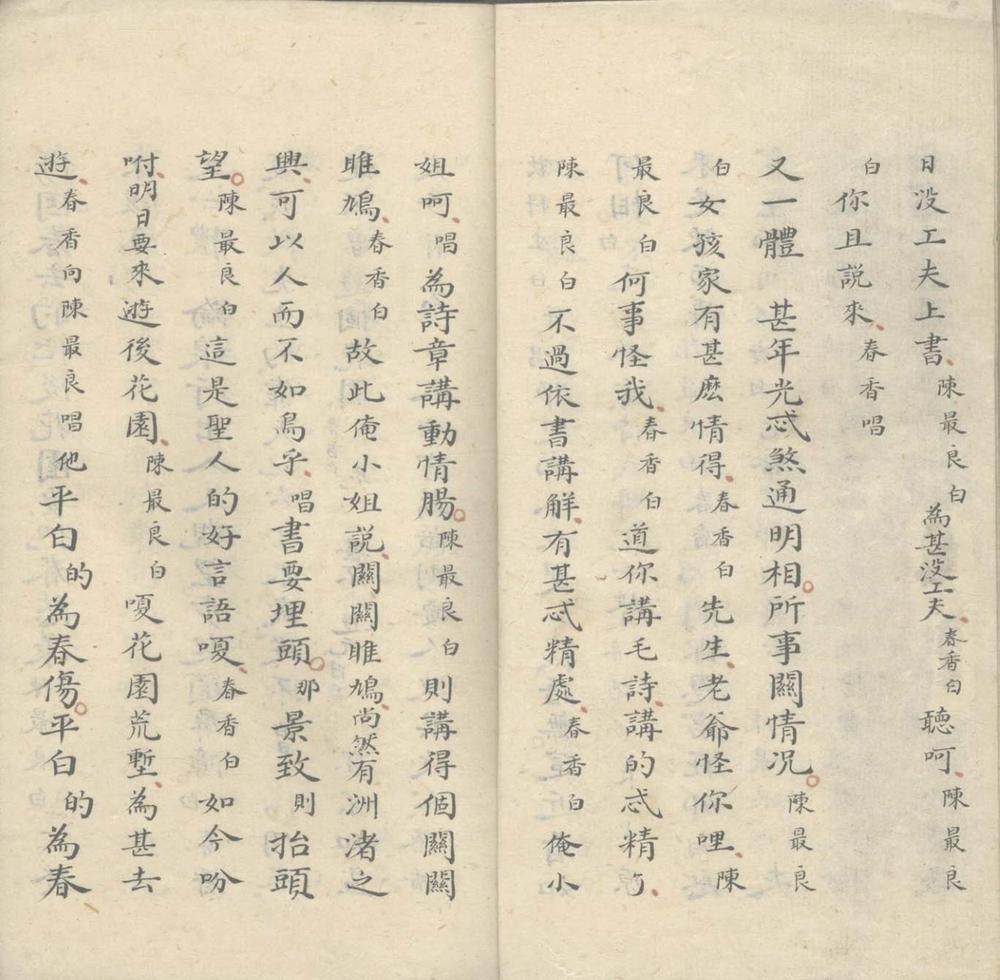 日没工夫上書、陳最良白為甚没工夫、春香白聽呵、陳最良
白你且説來、春香唱
又一體　甚年光忒煞通明相。所事關情况。陳最良
白女孩家有甚麽情得、春香白先生、老爺怪你哩、陳
最良白何事怪我、春香白道你講毛詩、講的忒精了、
陳最良白不過依書講解、有甚忒精處、春香白俺小
姐呵、唱為詩章講動情腸。陳最良白則講得個關關
雎鳩、春香白故此俺小姐説、關關雎鳩、尚然有洲渚之
興、可以人而不如鳥乎、唱書要埋頭。那景致則抬頭
望。陳最良白這是聖人的好言語嗄、春香白如今吩
咐、明日要來遊後花園、陳最良白嗄花園荒塹、為甚去
遊、春香向陳最良唱他平白的為春傷。平白的為春